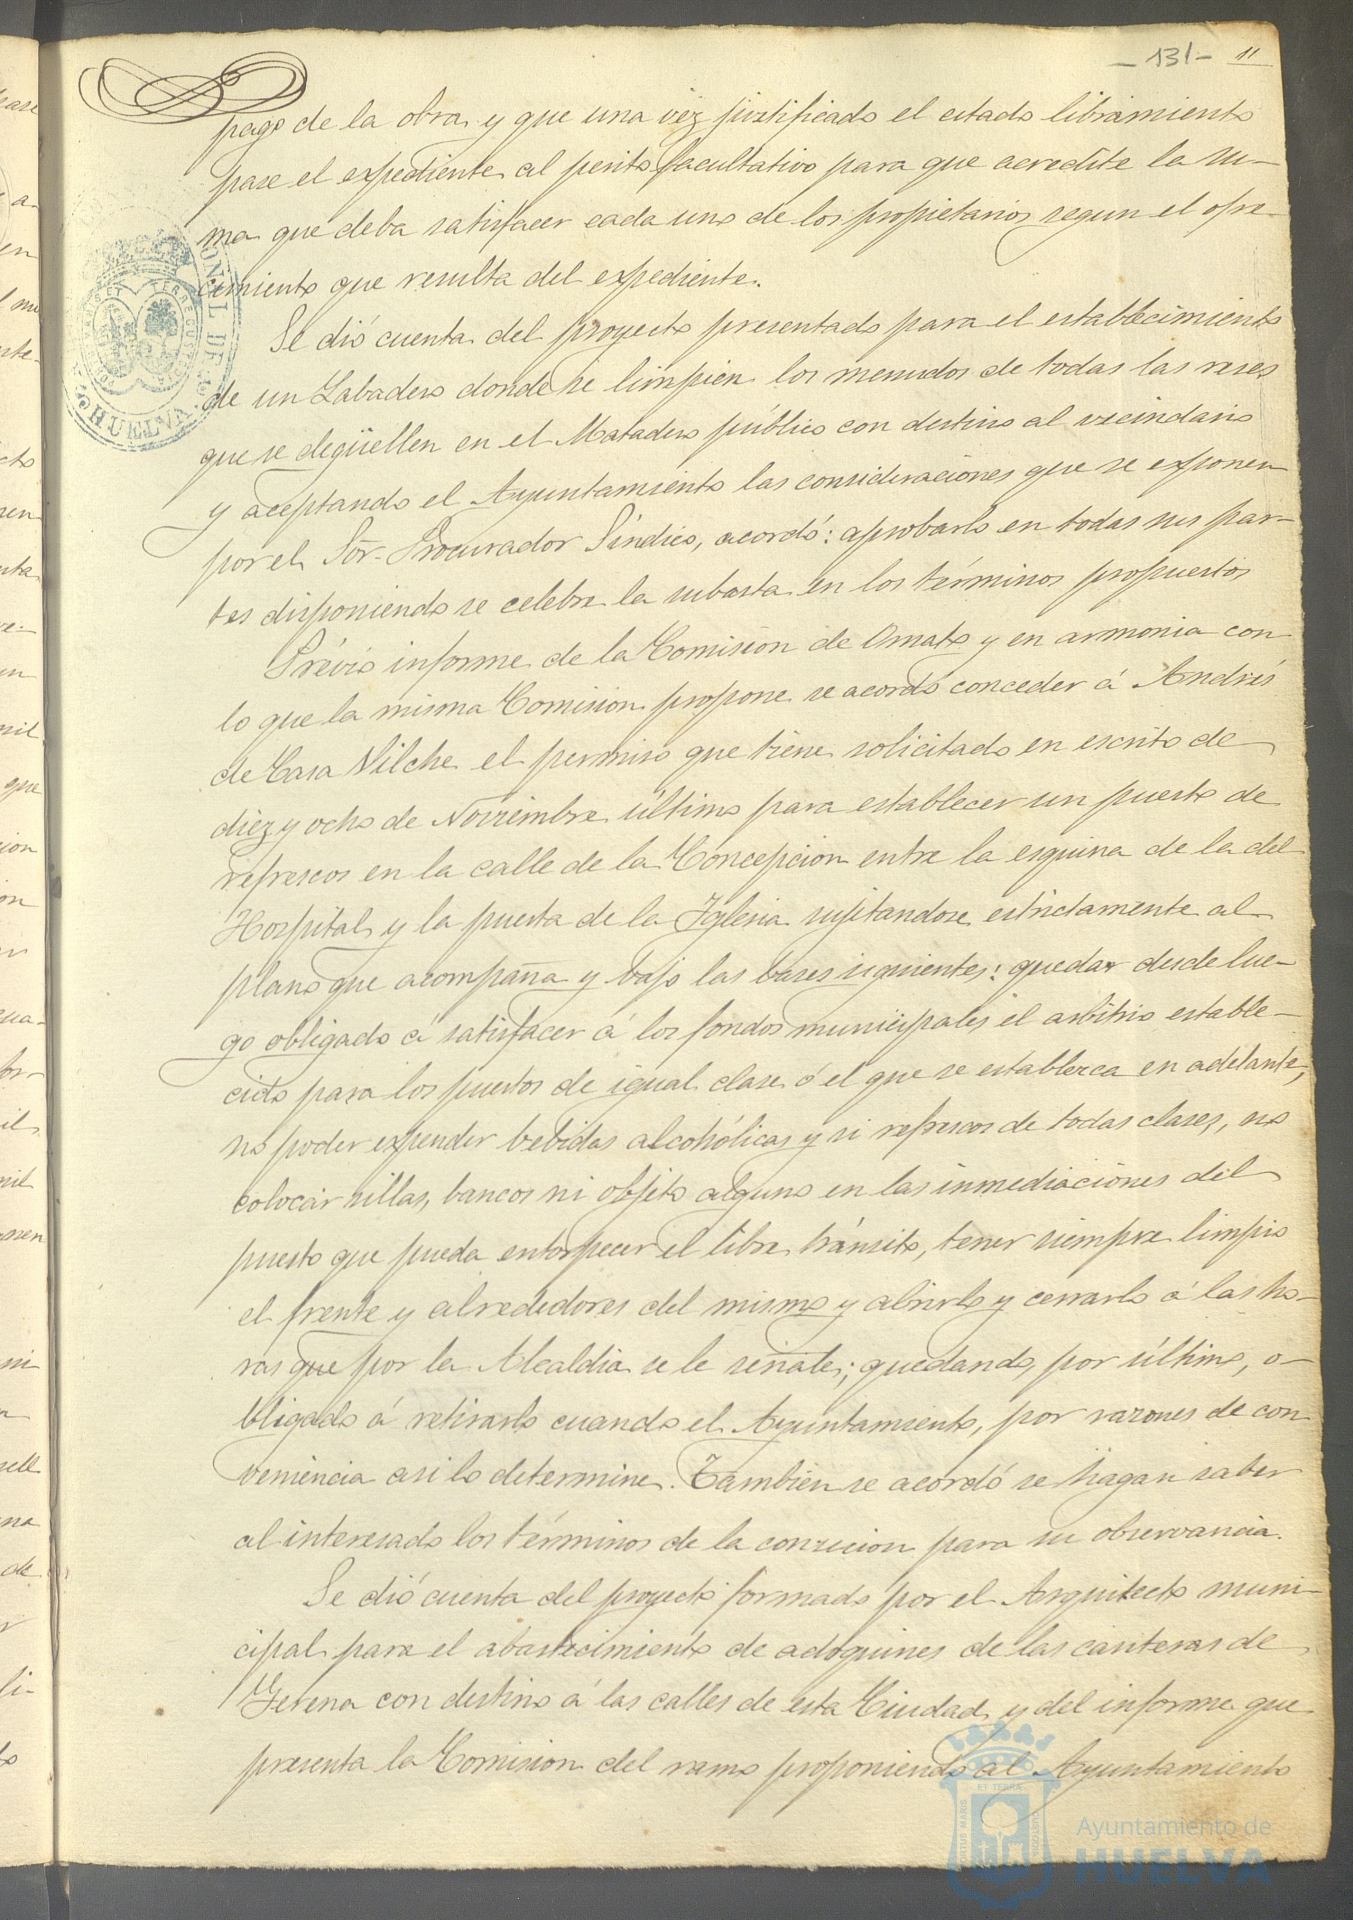 - 131 - 11
pago de la obra y que una vez justificado el citado libramiento
pase el expediente al perito facultativo para que acredite la su-
ma que deba satisfacer cada uno de los propietarios segun el ofre-
cimiento que resulta del expediente.
Se dió cuenta del proyecto presentado para el establecimiento
de un Labadero donde se limpien los menudos de todas las reses
que se degüellen en el Matadero público con destino al vecindario
y aceptando el Ayuntamiento las consideraciones que se exponen
por el Sõr. Procurador Síndico, acordó: aprobarlo en todas sus par-
tes disponiendo se celebre la subasta en los términos propuestos
Prévio informe de la Comision de Ornato y en armonia con
lo que la misma Comision propone se acordó conceder á Andrés
de Casa Vilche el permiso que tiene solicitado en escrito de
diez y ocho de Noviembre último para establecer un puesto de
refrescos en la calle de la Concepcion entre la esquina de la del
Hospital y la puerta de la Iglesia sujetandose estrictamente al
plano que acompaña y bajo las bases siguientes: quedar desde lue-
go obligado á satisfacer á los fondos municipales el arbitrio estable-
cido para los puestos de igual clase ó el que se establezca en adelante;
no poder expender bebidas alcohólicas y si refrescos de todas clases, no
colocar sillas, bancos ni objeto alguno en las inmediaciones del
puesto que pueda entorpecer el libre tránsito, tener siempre limpio
el frente y alrededores del mismo y abrirlo y cerrarlo á las ho-
ras que por la Alcaldia se le señale; quedando, por último, o-
bligado á retirarlo cuando el Ayuntamiento, por razones de con
veniencia asi lo determine. Tambien se acordó se hagan saber
al interesado los términos de la concesion para su observancia.
Se dió cuenta del proyecto formado por el Arquitecto muni-
cipal para el abastecimiento de adoquines de las canteras de
Gerena con destino á las calles de esta Ciudad y del informe que
presenta la Comision del ramo proponiendo al Ayuntamiento
HUELVA
Ayuntamiento de
HUELVA